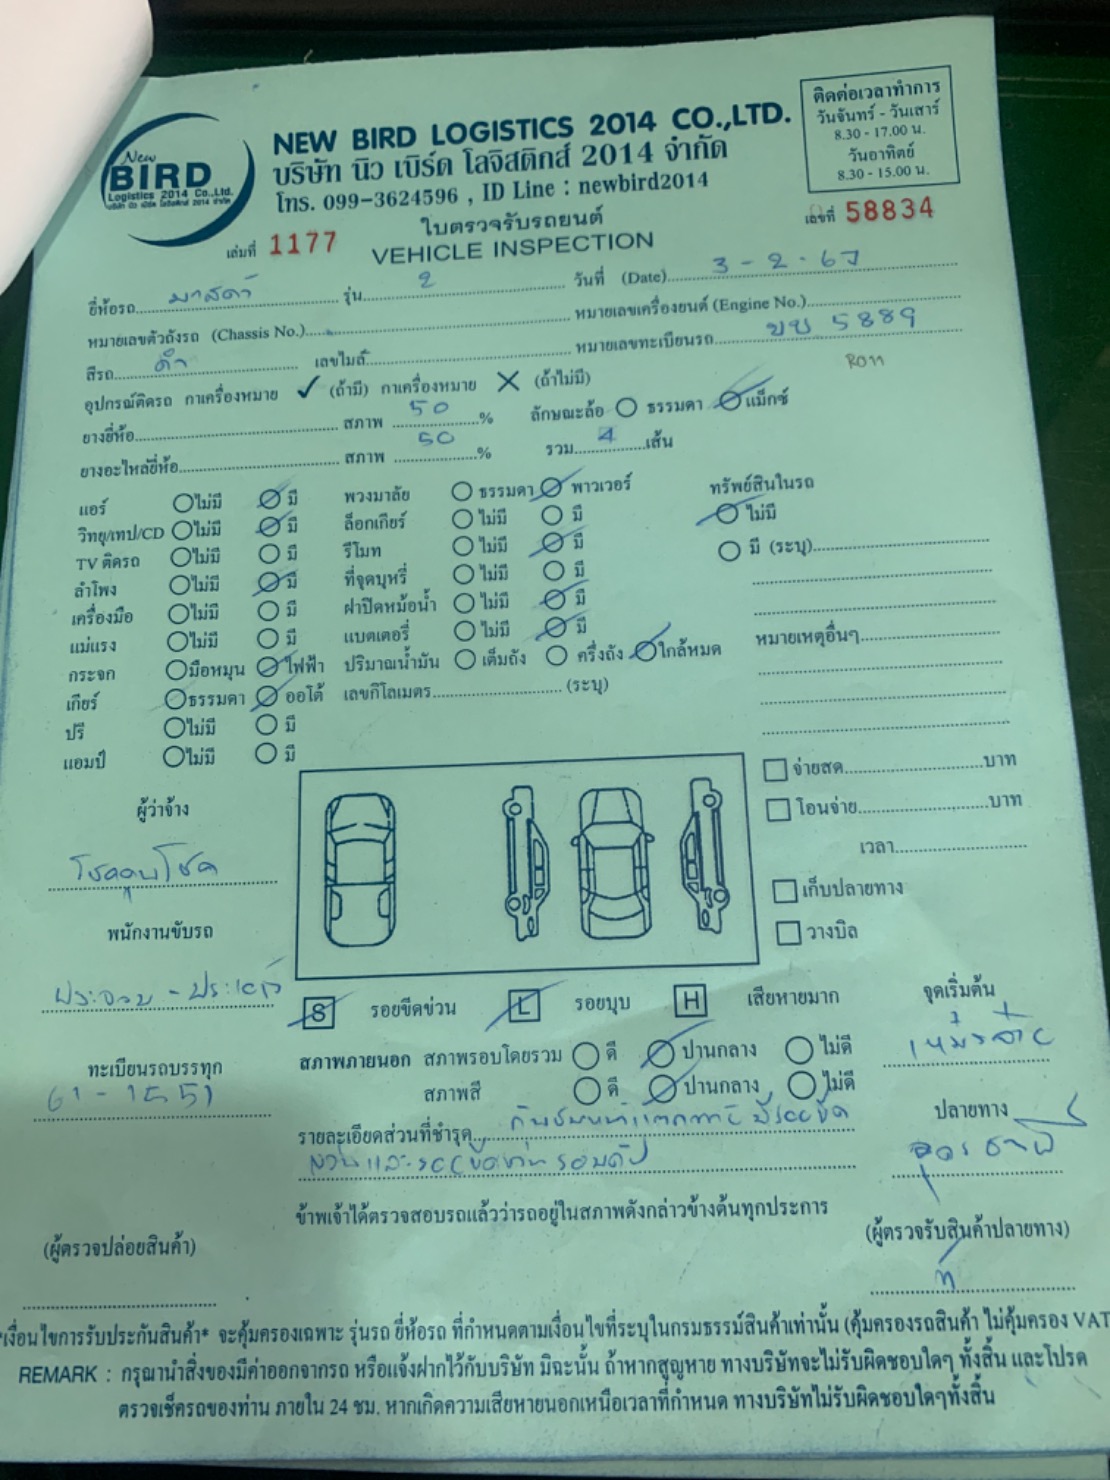 New
BIRD
Logistics 2014 Co.,Ltd.
บริษัท นิว เบิร์ด โลจิสติกส์ 2014 จำกัด
NEW BIRD LOGISTICS 2014 CO.,LTD.
บริษัท นิว เบิร์ด โลจิสติกส์ 2014 จำกัด
โทร. 099-3624596 , ID Line : newbird2014
ติดต่อเวลาทำการ
วันจันทร์ - วันเสาร์
8.30 - 17.00 น.
วันอาทิตย์
8.30 - 15.00 น.
เล่มที่ 1177
ใบตรวจรับรถยนต์
VEHICLE INSPECTION
เลขที่ 58834
ยี่ห้อรถ มาสด้า รุ่น 2 วันที่ (Date) 3-2-67
หมายเลขตัวถังรถ (Chassis No.) หมายเลขเครื่องยนต์ (Engine No.)
สีรถ ดำ เลขไมล์ หมายเลขทะเบียนรถ ขบ 5889
R011
อุปกรณ์ติดรถ กาเครื่องหมาย ✓ (ถ้ามี) กาเครื่องหมาย ✕ (ถ้าไม่มี)
ยางยี่ห้อ สภาพ 50 % ลักษณะล้อ ธรรมดา แม็กซ์
ยางอะไหล่ยี่ห้อ สภาพ 50 % รวม 4 เส้น
แอร์ ไม่มี มี พวงมาลัย ธรรมดา พาวเวอร์ ทรัพย์สินในรถ
วิทยุ/เทป/CD ไม่มี มี ล็อกเกียร์ ไม่มี มี ไม่มี
TV ติดรถ ไม่มี มี รีโมท ไม่มี มี มี (ระบุ)
ลำโพง ไม่มี มี ที่จุดบุหรี่ ไม่มี มี
เครื่องมือ ไม่มี มี ฝาปิดหม้อน้ำ ไม่มี มี
แม่แรง ไม่มี มี แบตเตอรี่ ไม่มี มี หมายเหตุอื่นๆ
กระจก มือหมุน ไฟฟ้า ปริมาณน้ำมัน เต็มถัง ครึ่งถัง ใกล้หมด
เกียร์ ธรรมดา ออโต้ เลขกิโลเมตร (ระบุ)
ปรี ไม่มี มี
แอมป์ ไม่มี มี
จ่ายสด บาท
โอนจ่าย บาท
เวลา
เก็บปลายทาง
วางบิล
ผู้ว่าจ้าง
โชคคูนโชค
พนักงานขับรถ
ประจวบ - ประเวศ
ทะเบียนรถบรรทุก
61-1551
S รอยขีดข่วน L รอยบุบ H เสียหายมาก
สภาพภายนอก สภาพรอบโดยรวม ดี ปานกลาง ไม่ดี
สภาพสี ดี ปานกลาง ไม่ดี
รายละเอียดส่วนที่ชำรุด
จุดเริ่มต้น
ปลายทาง
อุดรธานี
ข้าพเจ้าได้ตรวจสอบรถแล้วว่ารถอยู่ในสภาพดังกล่าวข้างต้นทุกประการ
(ผู้ตรวจปล่อยสินค้า)
(ผู้ตรวจรับสินค้าปลายทาง)
*เงื่อนไขการรับประกันสินค้า* จะคุ้มครองเฉพาะ รุ่นรถ ยี่ห้อรถ ที่กำหนดตามเงื่อนไขที่ระบุในกรมธรรม์สินค้าเท่านั้น (คุ้มครองรถสินค้า ไม่คุ้มครอง VAT
REMARK : กรุณานำสิ่งของมีค่าออกจากรถ หรือแจ้งฝากไว้กับบริษัท มิฉะนั้น ถ้าหากสูญหาย ทางบริษัทจะไม่รับผิดชอบใดๆ ทั้งสิ้น และโปรด
ตรวจเช็ครถของท่าน ภายใน 24 ชม. หากเกิดความเสียหายนอกเหนือเวลาที่กำหนด ทางบริษัทไม่รับผิดชอบใดๆทั้งสิ้น